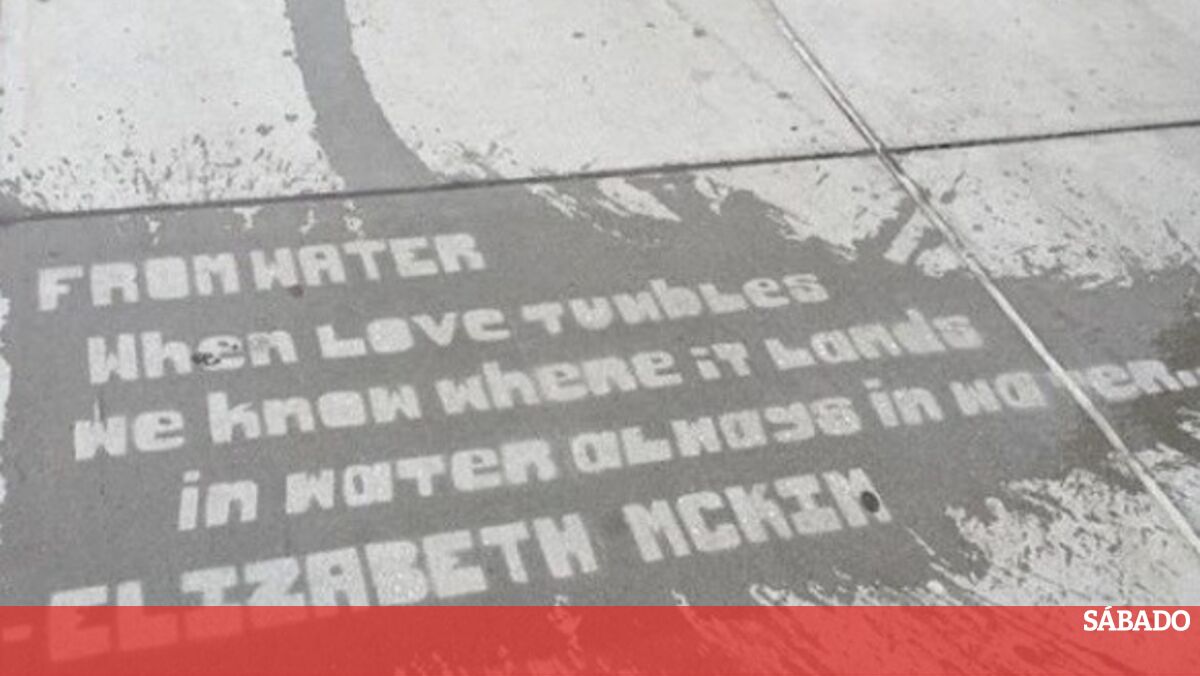 FROM WATER
When Love Tumbles
we know where it Lands
in water always in water.
-ELIZABETH MCKIM
SÁBADO